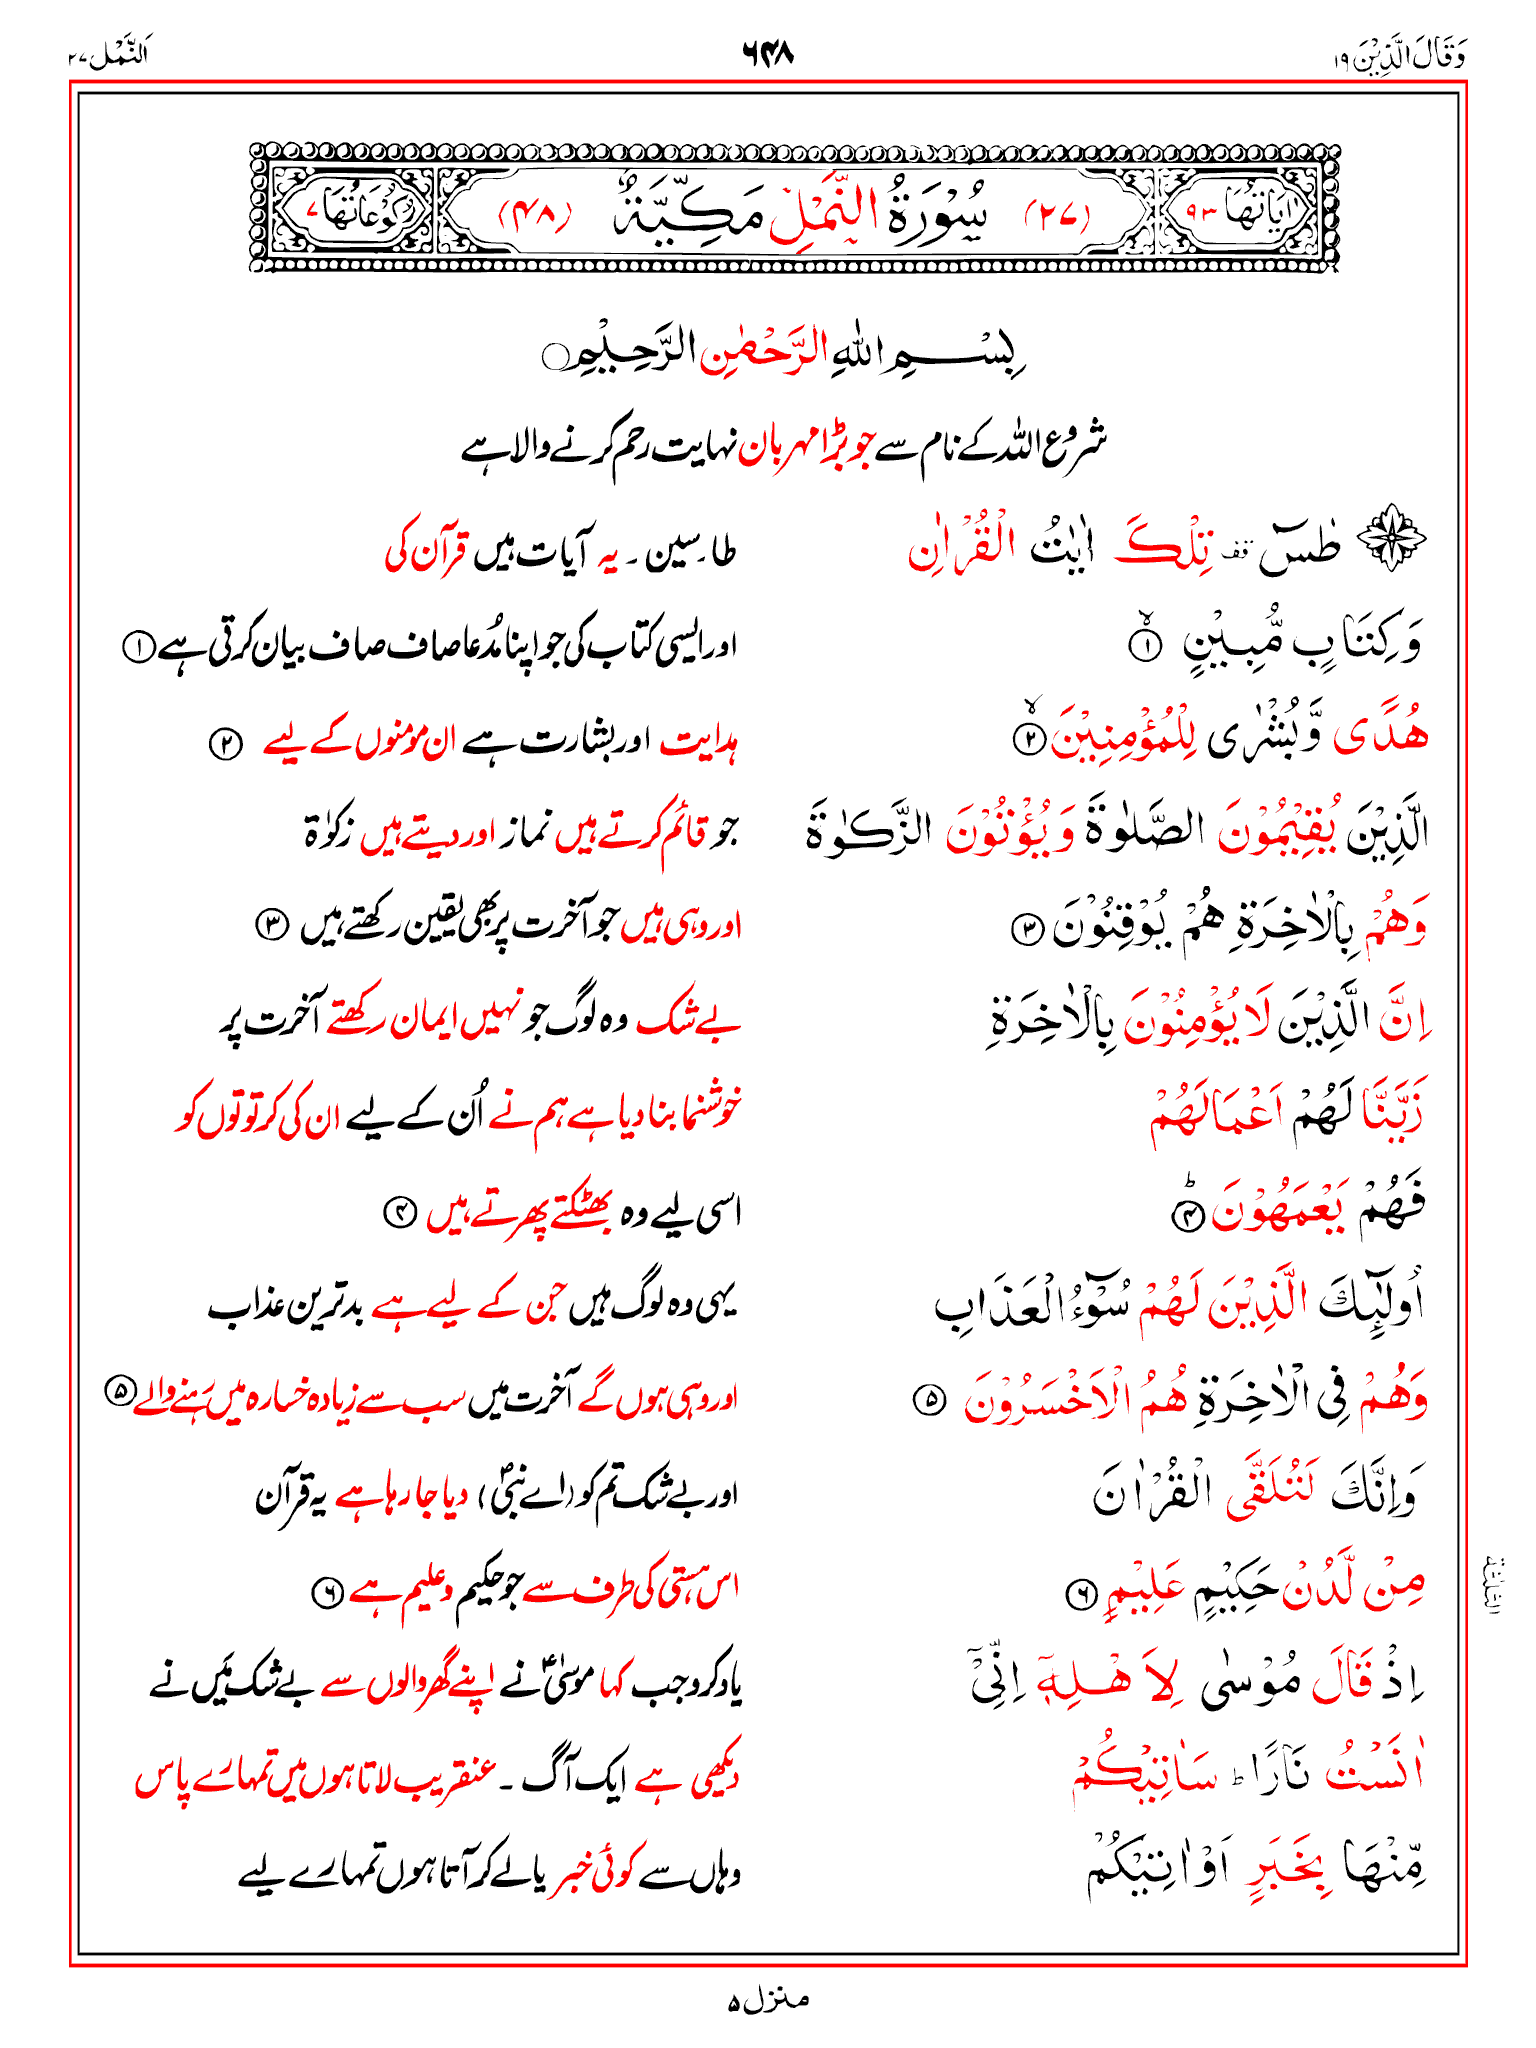 وَقَالَ الَّذِیْنَ ۱۹
۶۴۸
اَلنَّمْل ۲۷
اٰیَاتُهَا ۹۳ (۲۷) سُوْرَةُ النَّمْلِ مَكِّیَّةٌ (۴۸) رُكُوْعَاتُهَا ۷
بِسْمِ اللهِ الرَّحْمٰنِ الرَّحِیْمِ ○
شروع اللہ کے نام سے جو بڑا مہربان نہایت رحم کرنے والا ہے
طٰسٓ قف تِلْكَ اٰیٰتُ الْقُرْاٰنِ طا۔سین۔ یہ آیات ہیں قرآن کی
وَكِتَابٍ مُّبِیْنٍ ۱ لا اور ایسی کتاب کی جو اپنا مُدعا صاف صاف بیان کرتی ہے ۱
هُدًی وَّبُشْرٰی لِلْمُؤْمِنِیْنَ ۲ لا ہدایت اور بشارت ہے ان مومنوں کے لیے ۲
الَّذِیْنَ یُقِیْمُوْنَ الصَّلٰوةَ وَیُؤْتُوْنَ الزَّكٰوةَ جو قائم کرتے ہیں نماز اور دیتے ہیں زکوٰۃ
وَهُمْ بِالْاٰخِرَةِ هُمْ یُوْقِنُوْنَ ۳ اور وہی ہیں جو آخرت پر بھی یقین رکھتے ہیں ۳
اِنَّ الَّذِیْنَ لَا یُؤْمِنُوْنَ بِالْاٰخِرَةِ بے شک وہ لوگ جو نہیں ایمان رکھتے آخرت پر
زَیَّنَّا لَهُمْ اَعْمَالَهُمْ خوشنما بنا دیا ہے ہم نے اُن کے لیے ان کی کرتوتوں کو
فَهُمْ یَعْمَهُوْنَ ۴ ط اسی لیے وہ بھٹکتے پھرتے ہیں ۴
اُولٰٓئِكَ الَّذِیْنَ لَهُمْ سُوْٓءُ الْعَذَابِ یہی وہ لوگ ہیں جن کے لیے ہے بدترین عذاب
وَهُمْ فِی الْاٰخِرَةِ هُمُ الْاَخْسَرُوْنَ ۵ اور وہی ہوں گے آخرت میں سب سے زیادہ خسارہ میں رہنے والے ۵
وَاِنَّكَ لَتُلَقَّی الْقُرْاٰنَ اور بے شک تم کو (اے نبیؐ) دیا جا رہا ہے یہ قرآن
مِنْ لَّدُنْ حَكِیْمٍ عَلِیْمٍ ۶ اس ہستی کی طرف سے جو حکیم و علیم ہے ۶
اِذْ قَالَ مُوْسٰی لِاَهْلِهٖٓ اِنِّیْٓ یاد کرو جب کہا موسیٰؑ نے اپنے گھر والوں سے بے شک میَں نے
اٰنَسْتُ نَارًا ط سَاٰتِیْكُمْ دیکھی ہے ایک آگ ۔ عنقریب لاتا ہوں میں تمہارے پاس
مِّنْهَا بِخَبَرٍ اَوْ اٰتِیْكُمْ وہاں سے کوئی خبر یا لے کر آتا ہوں تمہارے لیے
منزل ۵